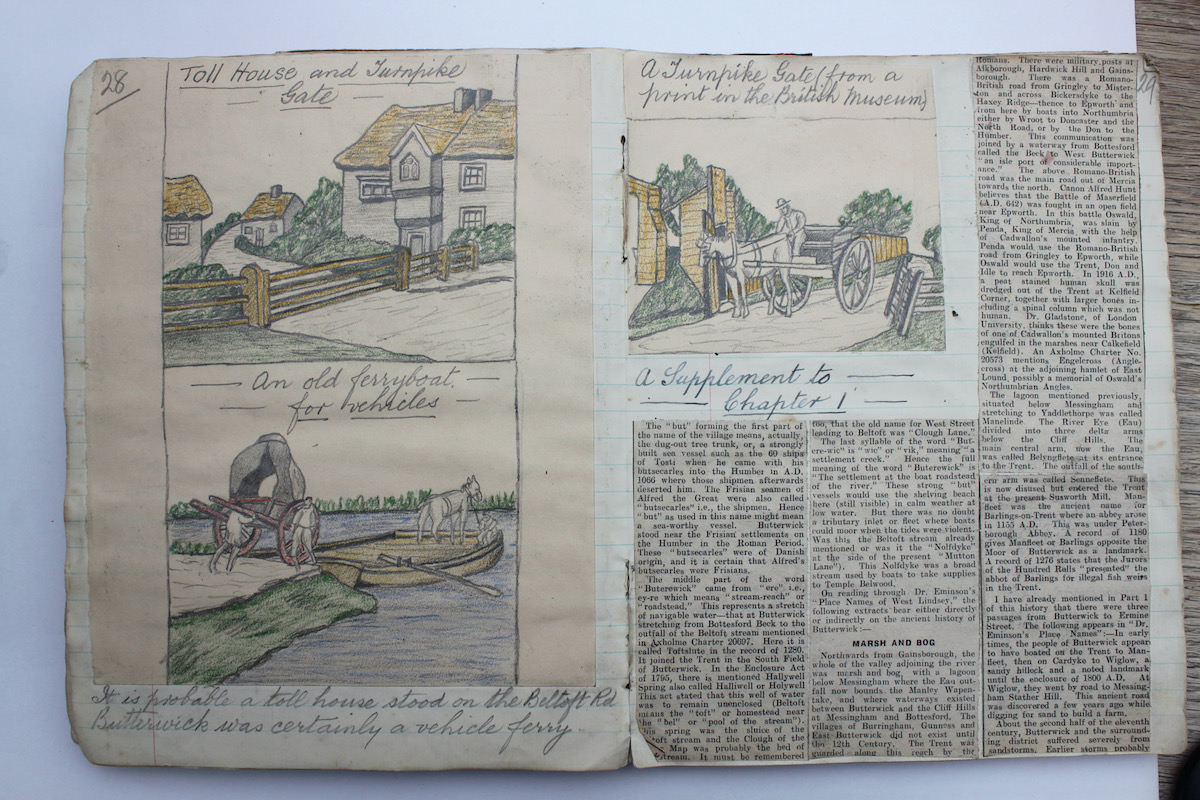 28
Toll House and Turnpike
Gate
An old ferryboat.
for vehicles
It is probable a toll house stood on the Beltoft Rd
Butterwick was certainly a vehicle ferry.
29
A Turnpike Gate (from a
print in the British Museum)
A Supplement to
Chapter 1
The "but" forming the first part of
the name of the village means, actually,
the dug-out tree trunk, or, a strongly
built sea vessel such as the 60 ships
of Tosti when he came with his
butsecarles into the Humber in A.D.
1066 where those shipmen afterwards
deserted him. The Frisian seamen of
Alfred the Great were also called
"butsecarles" i.e., the shipmen. Hence
"but" as used in this name might mean
a sea-worthy vessel. Butterwick
stood near the Frisian settlements on
the Humber in the Roman Period.
These "butsecarles" were of Danish
origin, and it is certain that Alfred's
butsecarles were Frisians.
The middle part of the word
"Buterewick" came from "ere" i.e.,
ey-re which means "stream-reach" or
"roadstead." This represents a stretch
of navigable water—that at Butterwick
stretching from Bottesford Beck to the
outfall of the Beltoft stream mentioned
in Axholme Charter 20697. Here it is
called Toftslute in the record of 1280.
It joined the Trent in the South Field
of Butterwick. In the Enclosure Act
of 1795, there is mentioned Hallywell
Spring also called Halliwell or Holywell
This Act stated that this well of water
was to remain unenclosed (Beltoft
means the "toft" or homestead near
the "bel" or "pool of the stream").
this spring was the sluice of the
toft stream and the Clough of the
Map was probably the bed of
stream. It must be remembered
too, that the old name for West Street
leading to Beltoft was "Clough Lane."
The last syllable of the word "But-
ere-wic" is "wic" or "vik," meaning "a
settlement creek." Hence the full
meaning of the word "Buterewick" is
"The settlement at the boat roadstead
of the river." These strong "but"
vessels would use the shelving beach
here (still visible) in calm weather at
low water. But there was no doubt
a tributary inlet or fleet where boats
could moor when the tides were violent.
Was this the Beltoft stream already
mentioned or was it the "Nolfdyke"
at the side of the present "Mutton
Lane"). This Nolfdyke was a broad
stream used by boats to take supplies
to Temple Belwood.
On reading through Dr. Eminson's
"Place Names of West Lindsey," the
following extracts bear either directly
or indirectly on the ancient history of
Butterwick:—
MARSH AND BOG
Northwards from Gainsborough, the
whole of the valley adjoining the river
was marsh and bog, with a lagoon
below Messingham where the Eau out-
fall now bounds the Manley Wapen-
take, and where waterways existed
between Butterwick and the Cliff Hills
at Messingham and Bottesford. The
villages of Burringham, Gunness and
East Butterwick did not exist until
the 12th Century. The Trent was
guarded along this reach by the
Romans. There were military posts at
Alkborough, Hardwick Hill and Gains-
borough. There was a Romano-
British road from Gringley to Mister-
ton and across Bickersdyke to the
Haxey Ridge—thence to Epworth and
from here by boats into Northumbria
either by Wroot to Doncaster and the
North Road, or by the Don to the
Humber. This communication was
joined by a waterway from Bottesford
called the Beck to West Butterwick
"an isle port of considerable import-
ance." The above Romano-British
road was the main road out of Mercia
towards the north. Canon Alfred Hunt
believes that the Battle of Maserfield
(A.D. 642) was fought in an open field
near Epworth. In this battle Oswald,
King of Northumbria, was slain by
Penda, King of Mercia, with the help
of Cadwallon's mounted infantry.
Penda would use the Romano-British
road from Gringley to Epworth, while
Oswald would use the Trent, Don and
Idle to reach Epworth. In 1916 A.D.,
a peat stained human skull was
dredged out of the Trent at Kelfield
Corner, together with larger bones in-
cluding a spinal column which was not
human. Dr. Gladstone, of London
University, thinks these were the bones
of one of Cadwallon's mounted Britons
engulfed in the marshes near Calkefield
(Kelfield). An Axholme Charter No.
20573 mentions Engelcross (Angle-
cross) at the adjoining hamlet of East
Lound, possibly a memorial of Oswald's
Northumbrian Angles.
The lagoon mentioned previously,
situated below Messingham and
stretching to Yaddlethorpe was called
Manelinde. The River Eye (Eau)
divided into three delta arms
below the Cliff Hills. The
main central arm, now the Eau,
was called Belyngflete at its entrance
to the Trent. The outfall of the south-
ern arm was called Senneflete. This
is now disused but entered the Trent
at the present Susworth Mill. Man-
fleet was the ancient name for
Barlings-on-Trent where an abbey arose
in 1155 A.D. This was under Peter-
borough Abbey. A record of 1180
uses Manfleet or Barlings opposite the
Moor of Butterwick as a landmark.
A record of 1276 states that the Jurors
of the Hundred Rolls "presented" the
abbot of Barlings for illegal fish weirs
in the Trent.
I have already mentioned in Part 1
of this history that there were three
passages from Butterwick to Ermine
Street. The following appears in "Dr.
Eminson's Place Names":—In early
times, the people of Butterwick appear
to have boated on the Trent to Man-
fleet, then on Cardyke to Wiglow, a
sandy hillock and a noted landmark
until the enclosure of 1800 A.D. At
Wiglow, they went by road to Messing-
ham Stather Hill. This ancient road
was discovered a few years ago while
digging for sand to build a farm.
About the second half of the eleventh
century, Butterwick and the surround-
ing district suffered severely from
sandstorms. Earlier storms probably